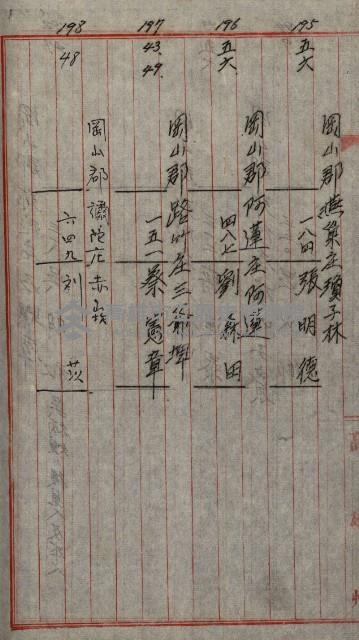 195
五六
岡山郡燕巢庄瓊子林
一八四 張明德
196
五六
岡山郡阿蓮庄阿蓮
四八七 劉森田
197
43.
49.
岡山郡路竹庄三爺埤
一五一 蔡憲章
198
48
岡山郡彌陀庄赤崁
六四九 刘